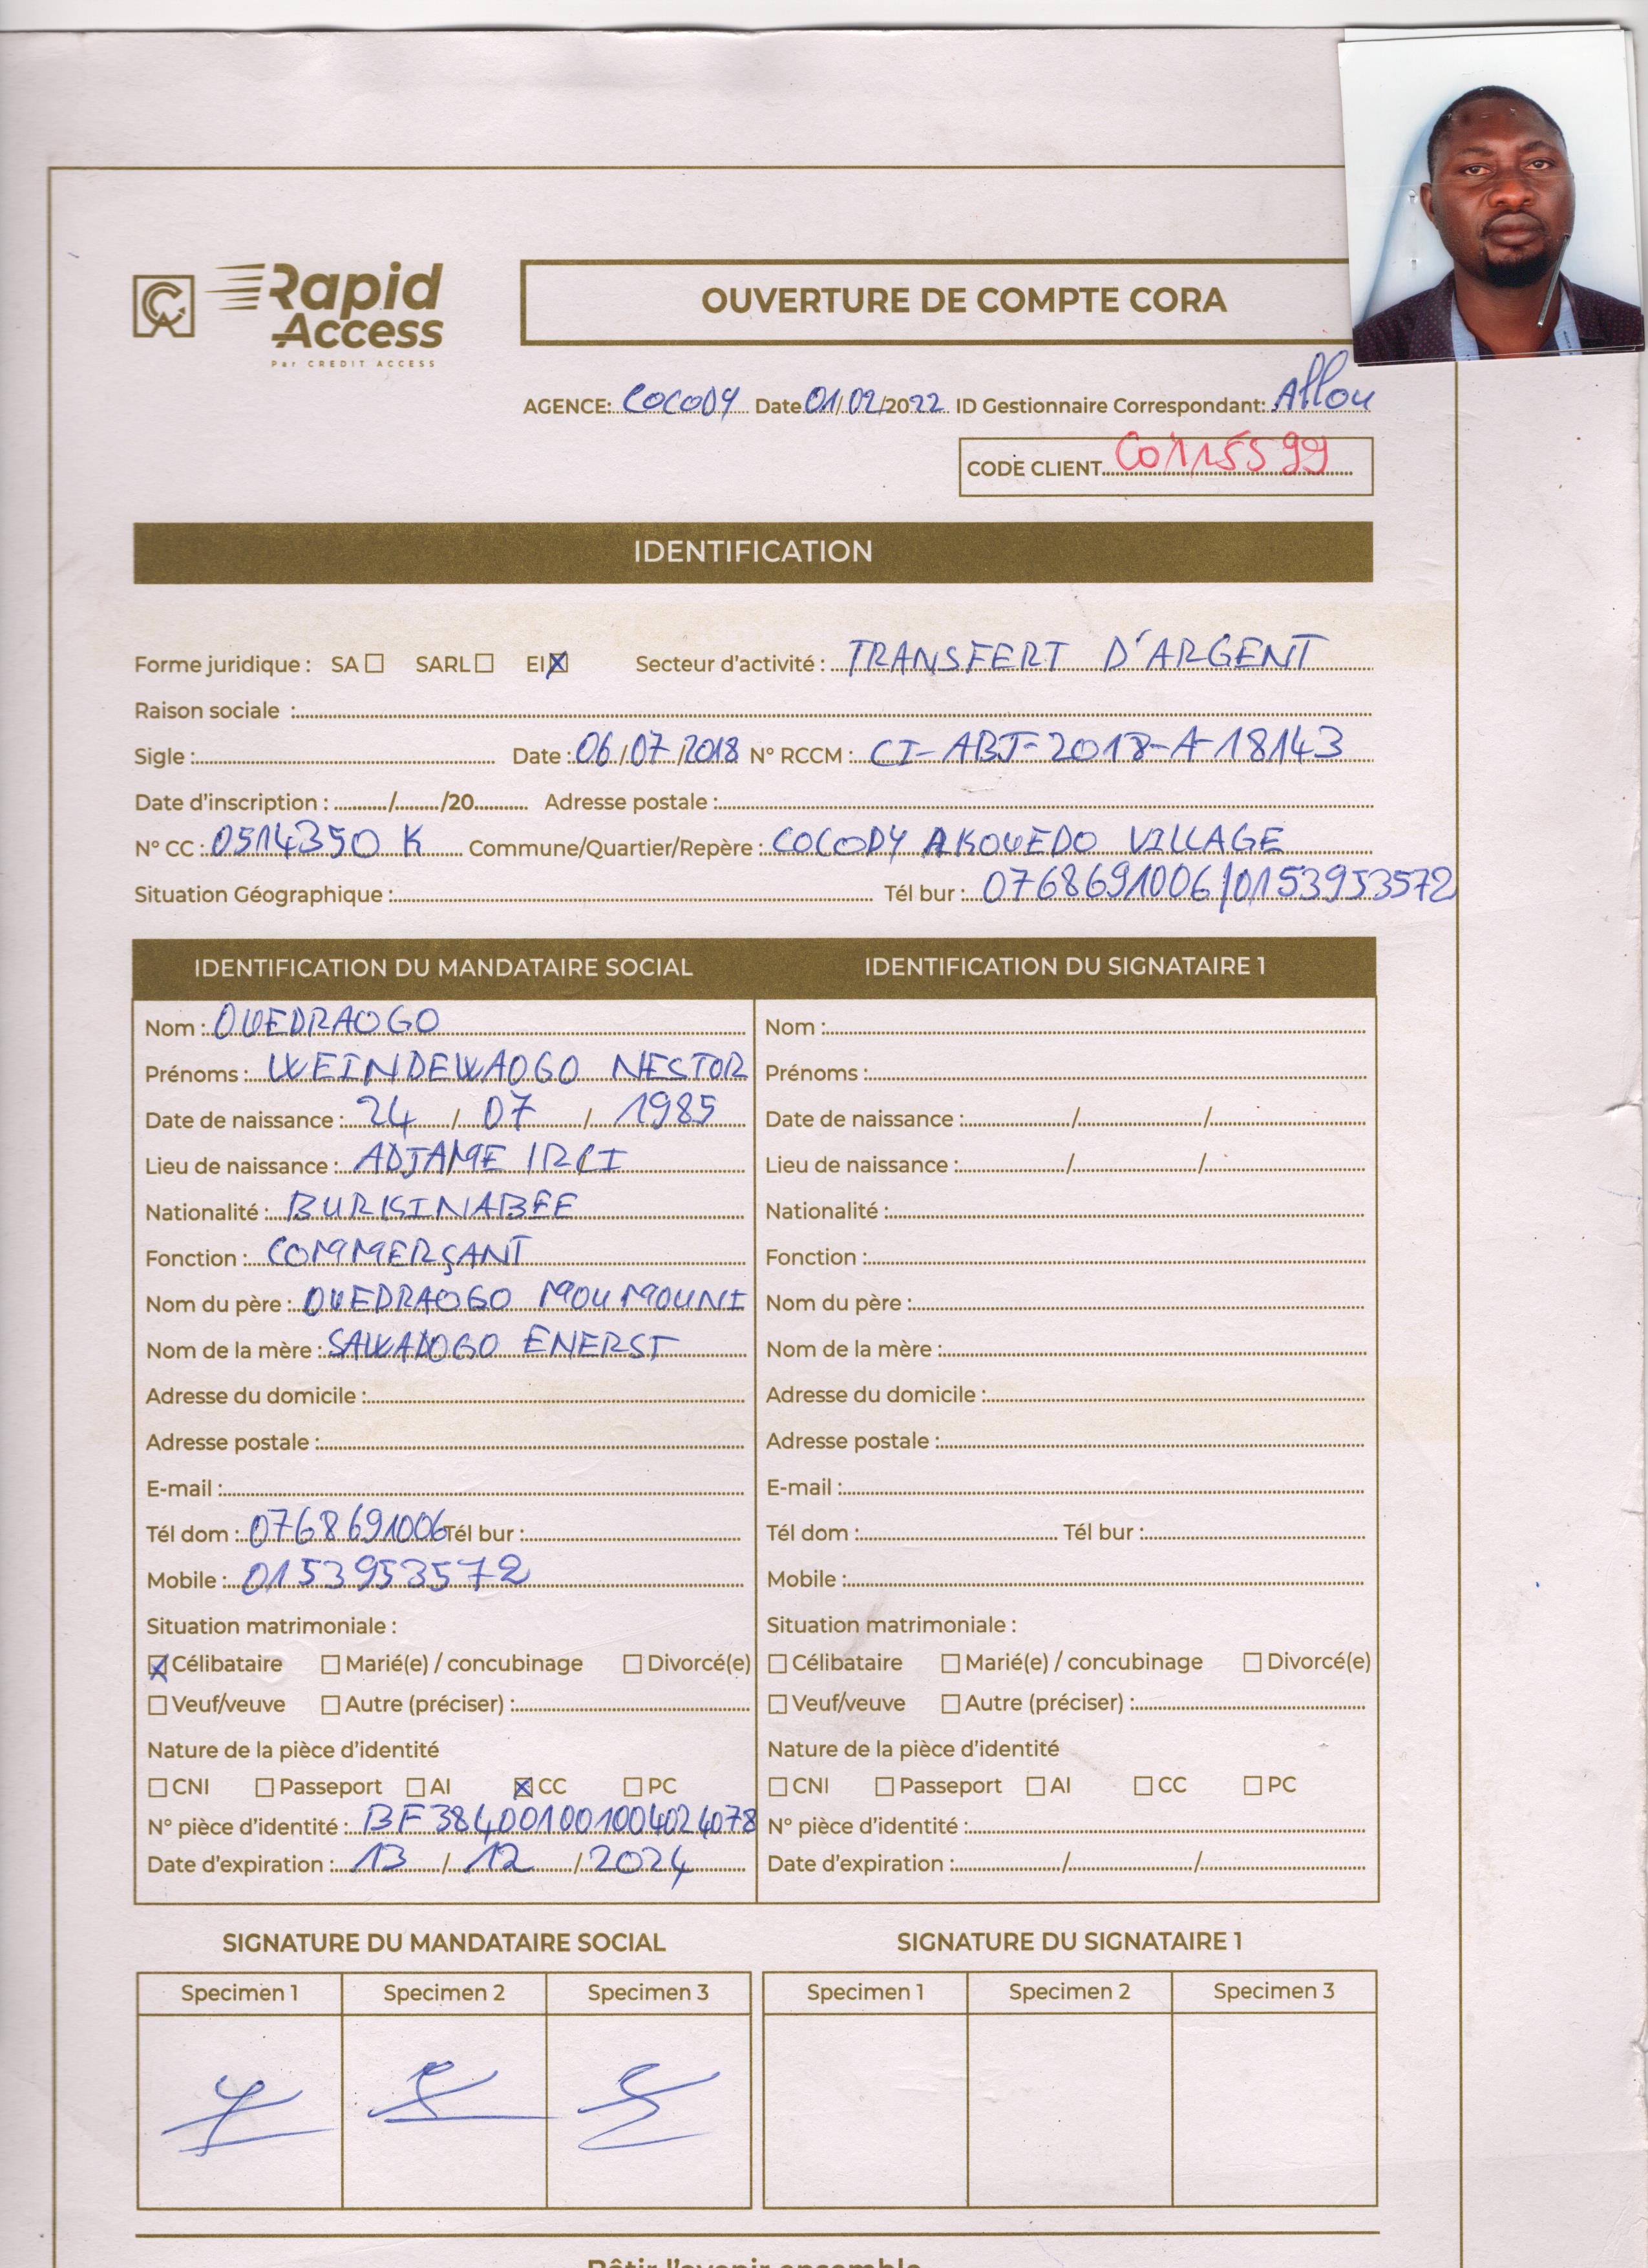 Rapid
Access
Par CREDIT ACCESS
OUVERTURE DE COMPTE CORA
AGENCE: COCODY Date 01/02/2022 ID Gestionnaire Correspondant: Allou
CODE CLIENT CO115599
IDENTIFICATION
Forme juridique : SA SARL EI Secteur d'activité : TRANSFERT D'ARGENT
Raison sociale :
Sigle : Date : 06/07/2018 N° RCCM : CI-ABJ-2018-A-18143
Date d'inscription : / /20 Adresse postale :
N° CC : 0514350 K Commune/Quartier/Repère : COCODY AKOUEDO VILLAGE
Situation Géographique : Tél bur : 0768691006/0153953572
IDENTIFICATION DU MANDATAIRE SOCIAL
Nom : OUEDRAOGO
Prénoms : WEINDEWAOGO NESTOR
Date de naissance : 24 / 07 / 1985
Lieu de naissance : ADJAME /RCI
Nationalité : BURKINABEE
Fonction : COMMERÇANT
Nom du père : OUEDRAOGO MOUMOUNI
Nom de la mère : SAWADOGO ENERST
Adresse du domicile :
Adresse postale :
E-mail :
Tél dom : 0768691006 Tél bur :
Mobile : 0153953572
Situation matrimoniale :
Célibataire Marié(e) / concubinage Divorcé(e)
Veuf/veuve Autre (préciser) :
Nature de la pièce d'identité
CNI Passeport AI CC PC
N° pièce d'identité : BF384001001004024078
Date d'expiration : 13 / 12 / 2024
IDENTIFICATION DU SIGNATAIRE 1
Nom :
Prénoms :
Date de naissance : / /
Lieu de naissance : / /
Nationalité :
Fonction :
Nom du père :
Nom de la mère :
Adresse du domicile :
Adresse postale :
E-mail :
Tél dom : Tél bur :
Mobile :
Situation matrimoniale :
Célibataire Marié(e) / concubinage Divorcé(e)
Veuf/veuve Autre (préciser) :
Nature de la pièce d'identité
CNI Passeport AI CC PC
N° pièce d'identité :
Date d'expiration : / /
SIGNATURE DU MANDATAIRE SOCIAL
Specimen 1 Specimen 2 Specimen 3
SIGNATURE DU SIGNATAIRE 1
Specimen 1 Specimen 2 Specimen 3
Bâtir l'avenir ensemble